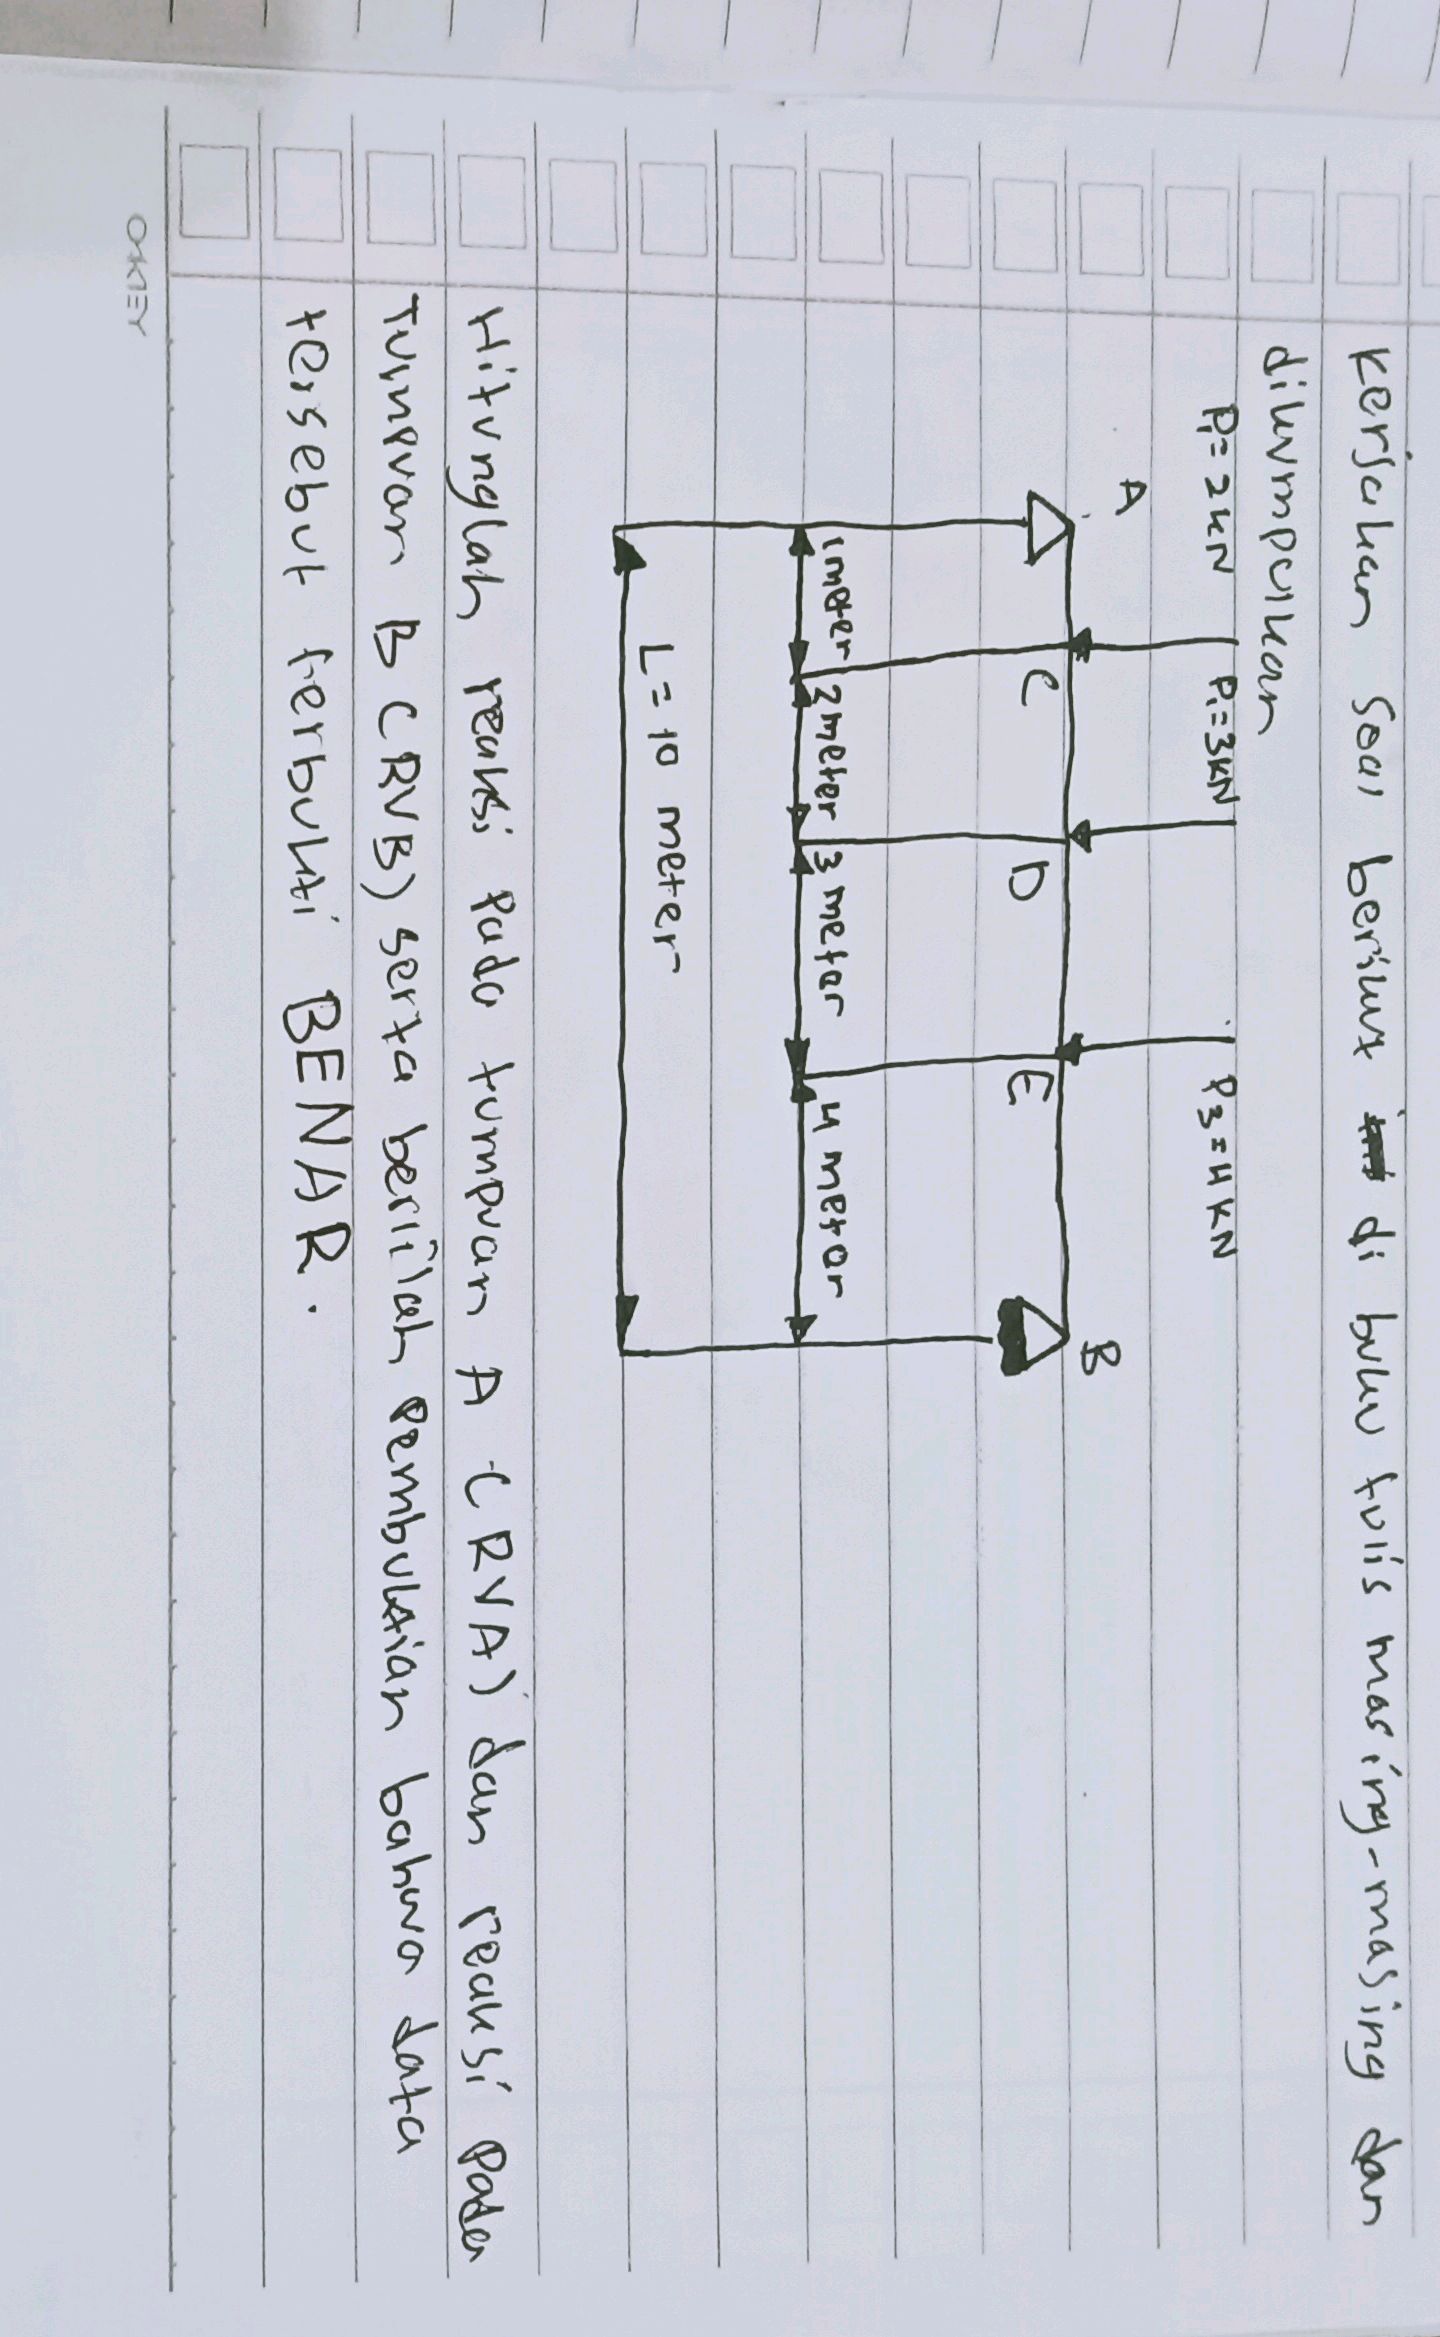 Kerjakan soal berikut di buku tulis masing-masing dan
dikumpulkan
P1=2kN P1=3KN P3=4KN
A B
C D E
1meter 2meter 3meter 4meter
L=10 meter
Hitunglah reaksi pada tumpuan A (RVA) dan reaksi pada
Tumpuan B (RVB) serta berilah pembuktian bahwa data
tersebut terbukti BENAR.
OKKEY